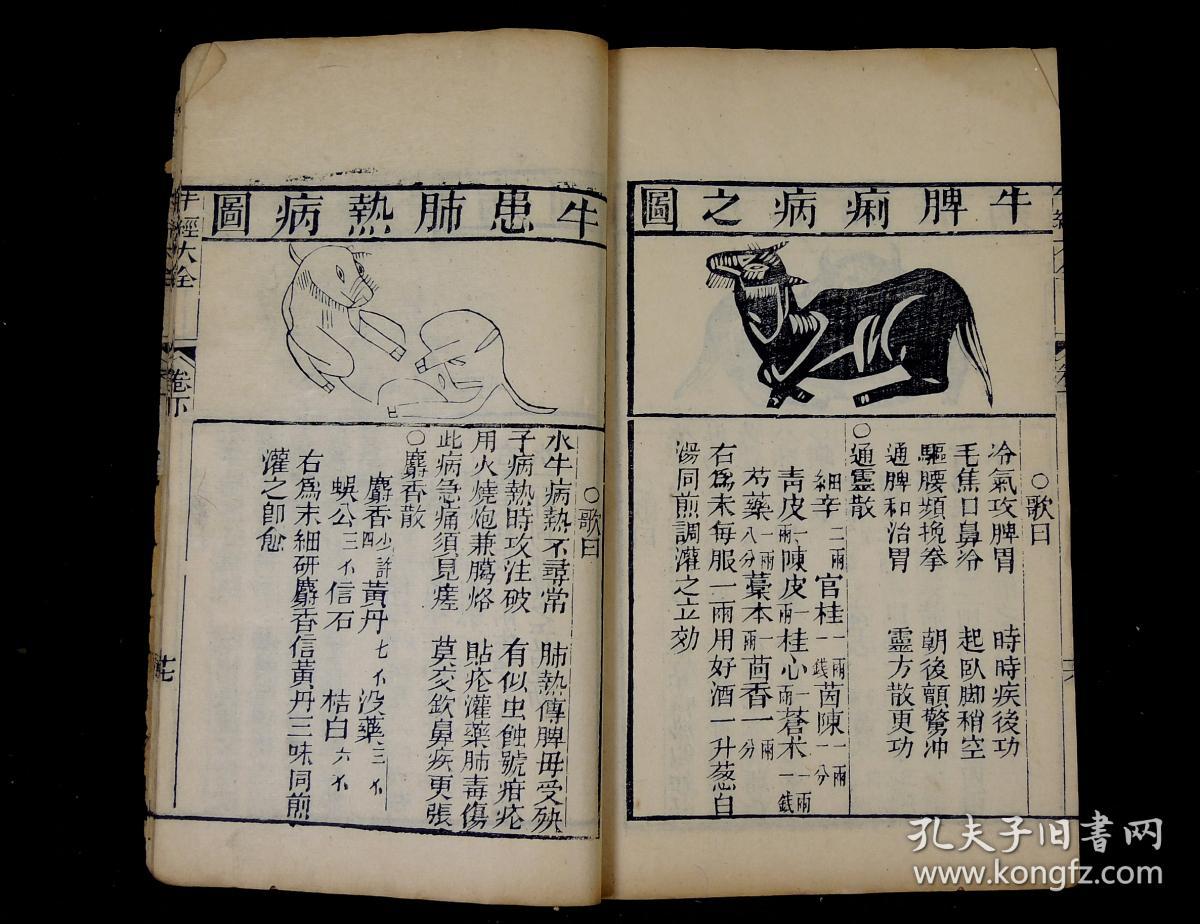 牛脾痢病之圖
○歌曰
冷氣攻脾胃 時時疾後功
毛焦口鼻冷 起臥脚稍空
驅腰頻挽拳 朝後顫驚冲
通脾和治胃 靈方散更功
○通靈散
細辛二兩 官桂一兩一錢 茵陳一兩一分
青皮一兩 陳皮一兩 桂心一兩 蒼朮一兩一錢
芍藥一兩八分 藁本一兩 茴香一兩一分
右爲末每服一兩用好酒一升葱白
湯同煎調灌之立効
牛患肺熱病圖
○歌曰
水牛病熱不尋常 肺熱傳脾毋受殃
子病熱時攻注破 有似虫蝕號疳疮
用火燒炮兼膓烙 貼疮灌藥肺毒傷
此病急痛須見瘥 莫交欽鼻疾更張
○麝香散
麝香少許 黃丹七个 没藥三个
蜈公三个 信石 桔白六个
右爲末細研麝香信黃丹三味同煎
灌之即愈
牛經大全
卷下
十七
孔夫子旧书网
www.kongfz.com